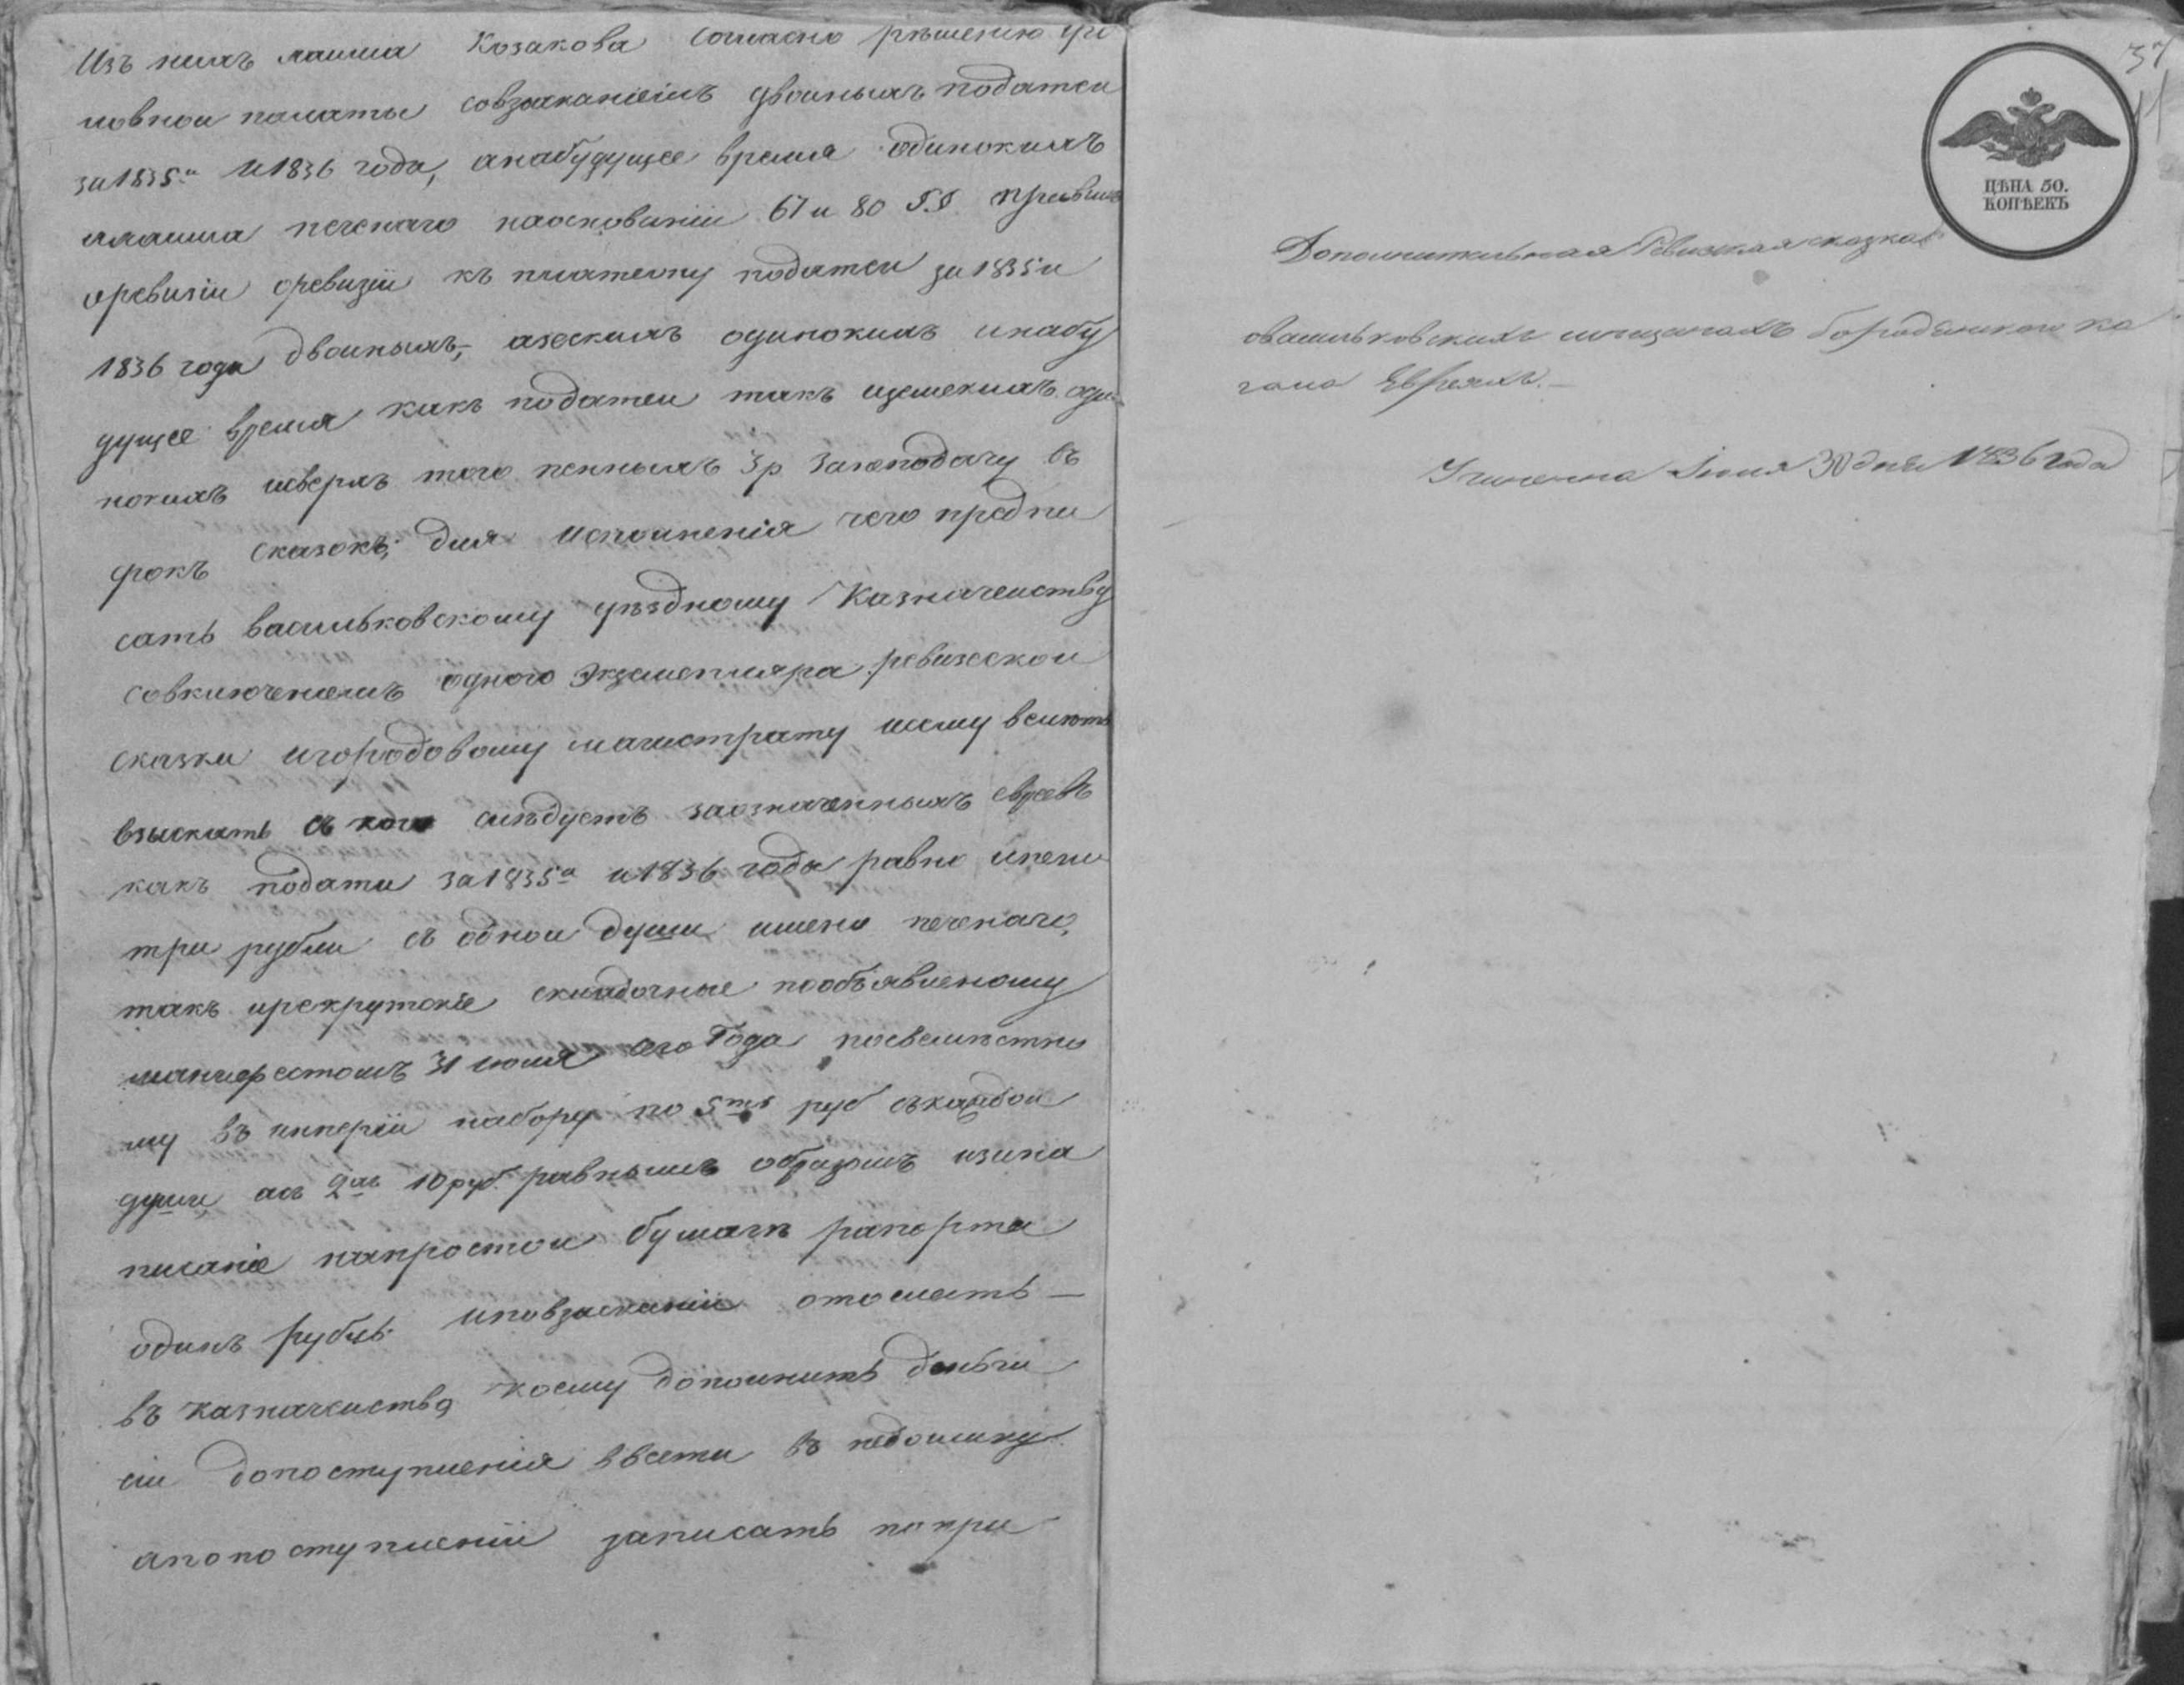 Изъ нихъ Лаииа Козакова согласно рѣшенію уго
ловнои палаты совзысканіемъ двоиныхъ податеи
за 1835и и 1836 года, анабудущее время одинокихъ
наоснованіи 67 и 80 §.§.
оревизіи къ платежу податеи за 1835 и
1836 года двоиныхъ, одинокихъ инабу
дущее время какъ податеи такъ оди
нокихъ исверхъ того пенныхъ 3р занеподачу въ
срокъ сказокъ; для исполненія чего предпи
сать васильковскому уѣздному Казначеиству
совключеніемъ одного экземпляра ревизскои
сказки игородовому магистрату
взыскать съ кого слѣдуетъ заозначенныхъ евреевъ
какъ подати за 1835и и 1836 года равно ипени
три рубли съ однои души имено
такъ ирекрутскіе складочные пообъявленому
манифестомъ 31 июля сего Года
му въ имперіи набору по 5ть руб скаждои
души ас 2хъ 10 руб. равнымъ образомъ изина
писаніе напростои бумагѣ рапорта
одинъ рубль иповзысканіи отослать —
въ казначеиство коему дополнить деньги
сіи допоступленія ввести въ недоимку
апопоступленіи записать попри
37
ЦѢНА 50.
КОПѢЕКЪ
Дополнительная Ревизская сказка
овасильковскихъ мещанахъ бородянского ка
гала Евреяхъ.—
Учинена Іюня 30 дня 1836 года